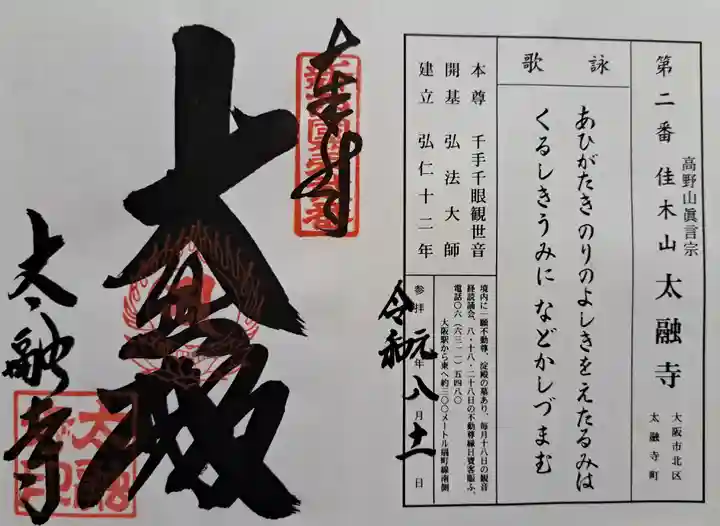 第二番 佳木山 太融寺
高野山眞言宗
大阪市北区
太融寺町
詠歌
あひがたきのりのよしきをえたるみは
くるしきうみに などかしづまむ
本尊 千手千眼観世音
開基 弘法大師
建立 弘仁十二年
境内に一願不動尊、淀殿の墓あり、毎月十八日の観音
経読誦会、八・十八・二十八日の不動尊縁日賽客賑ふ、
電話〇六(六三一一)五四八〇
大阪駅から東へ約三〇〇メートル扇町線南側
参拝 令和元年八月十一日
奉拝
大悲殿
太融寺